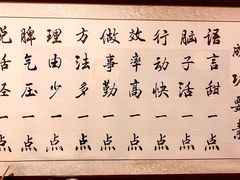 成功要素
语言甜一点
脑子活一点
行动快一点
效率高一点
做事勤一点
方法多一点
理由少一点
脾气压一点
说话轻一点